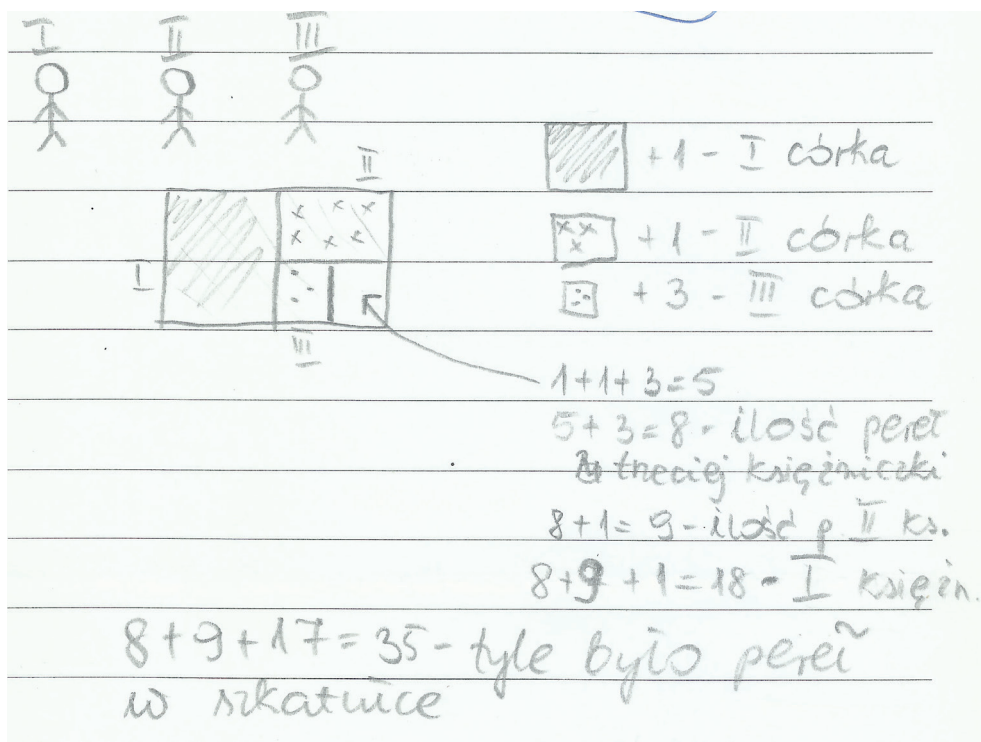 I II III
II
+1 - I córka
+1 - II córka
I
+ 3 - III córka
III
1+1+3=5
5+3=8 - ilość pereł
trzeciej księżniczki
8+1= 9 - ilość p. II ks.
8+9 +1=18 - I księżn.
8+9+17=35 - tyle było pereł
w szkatułce